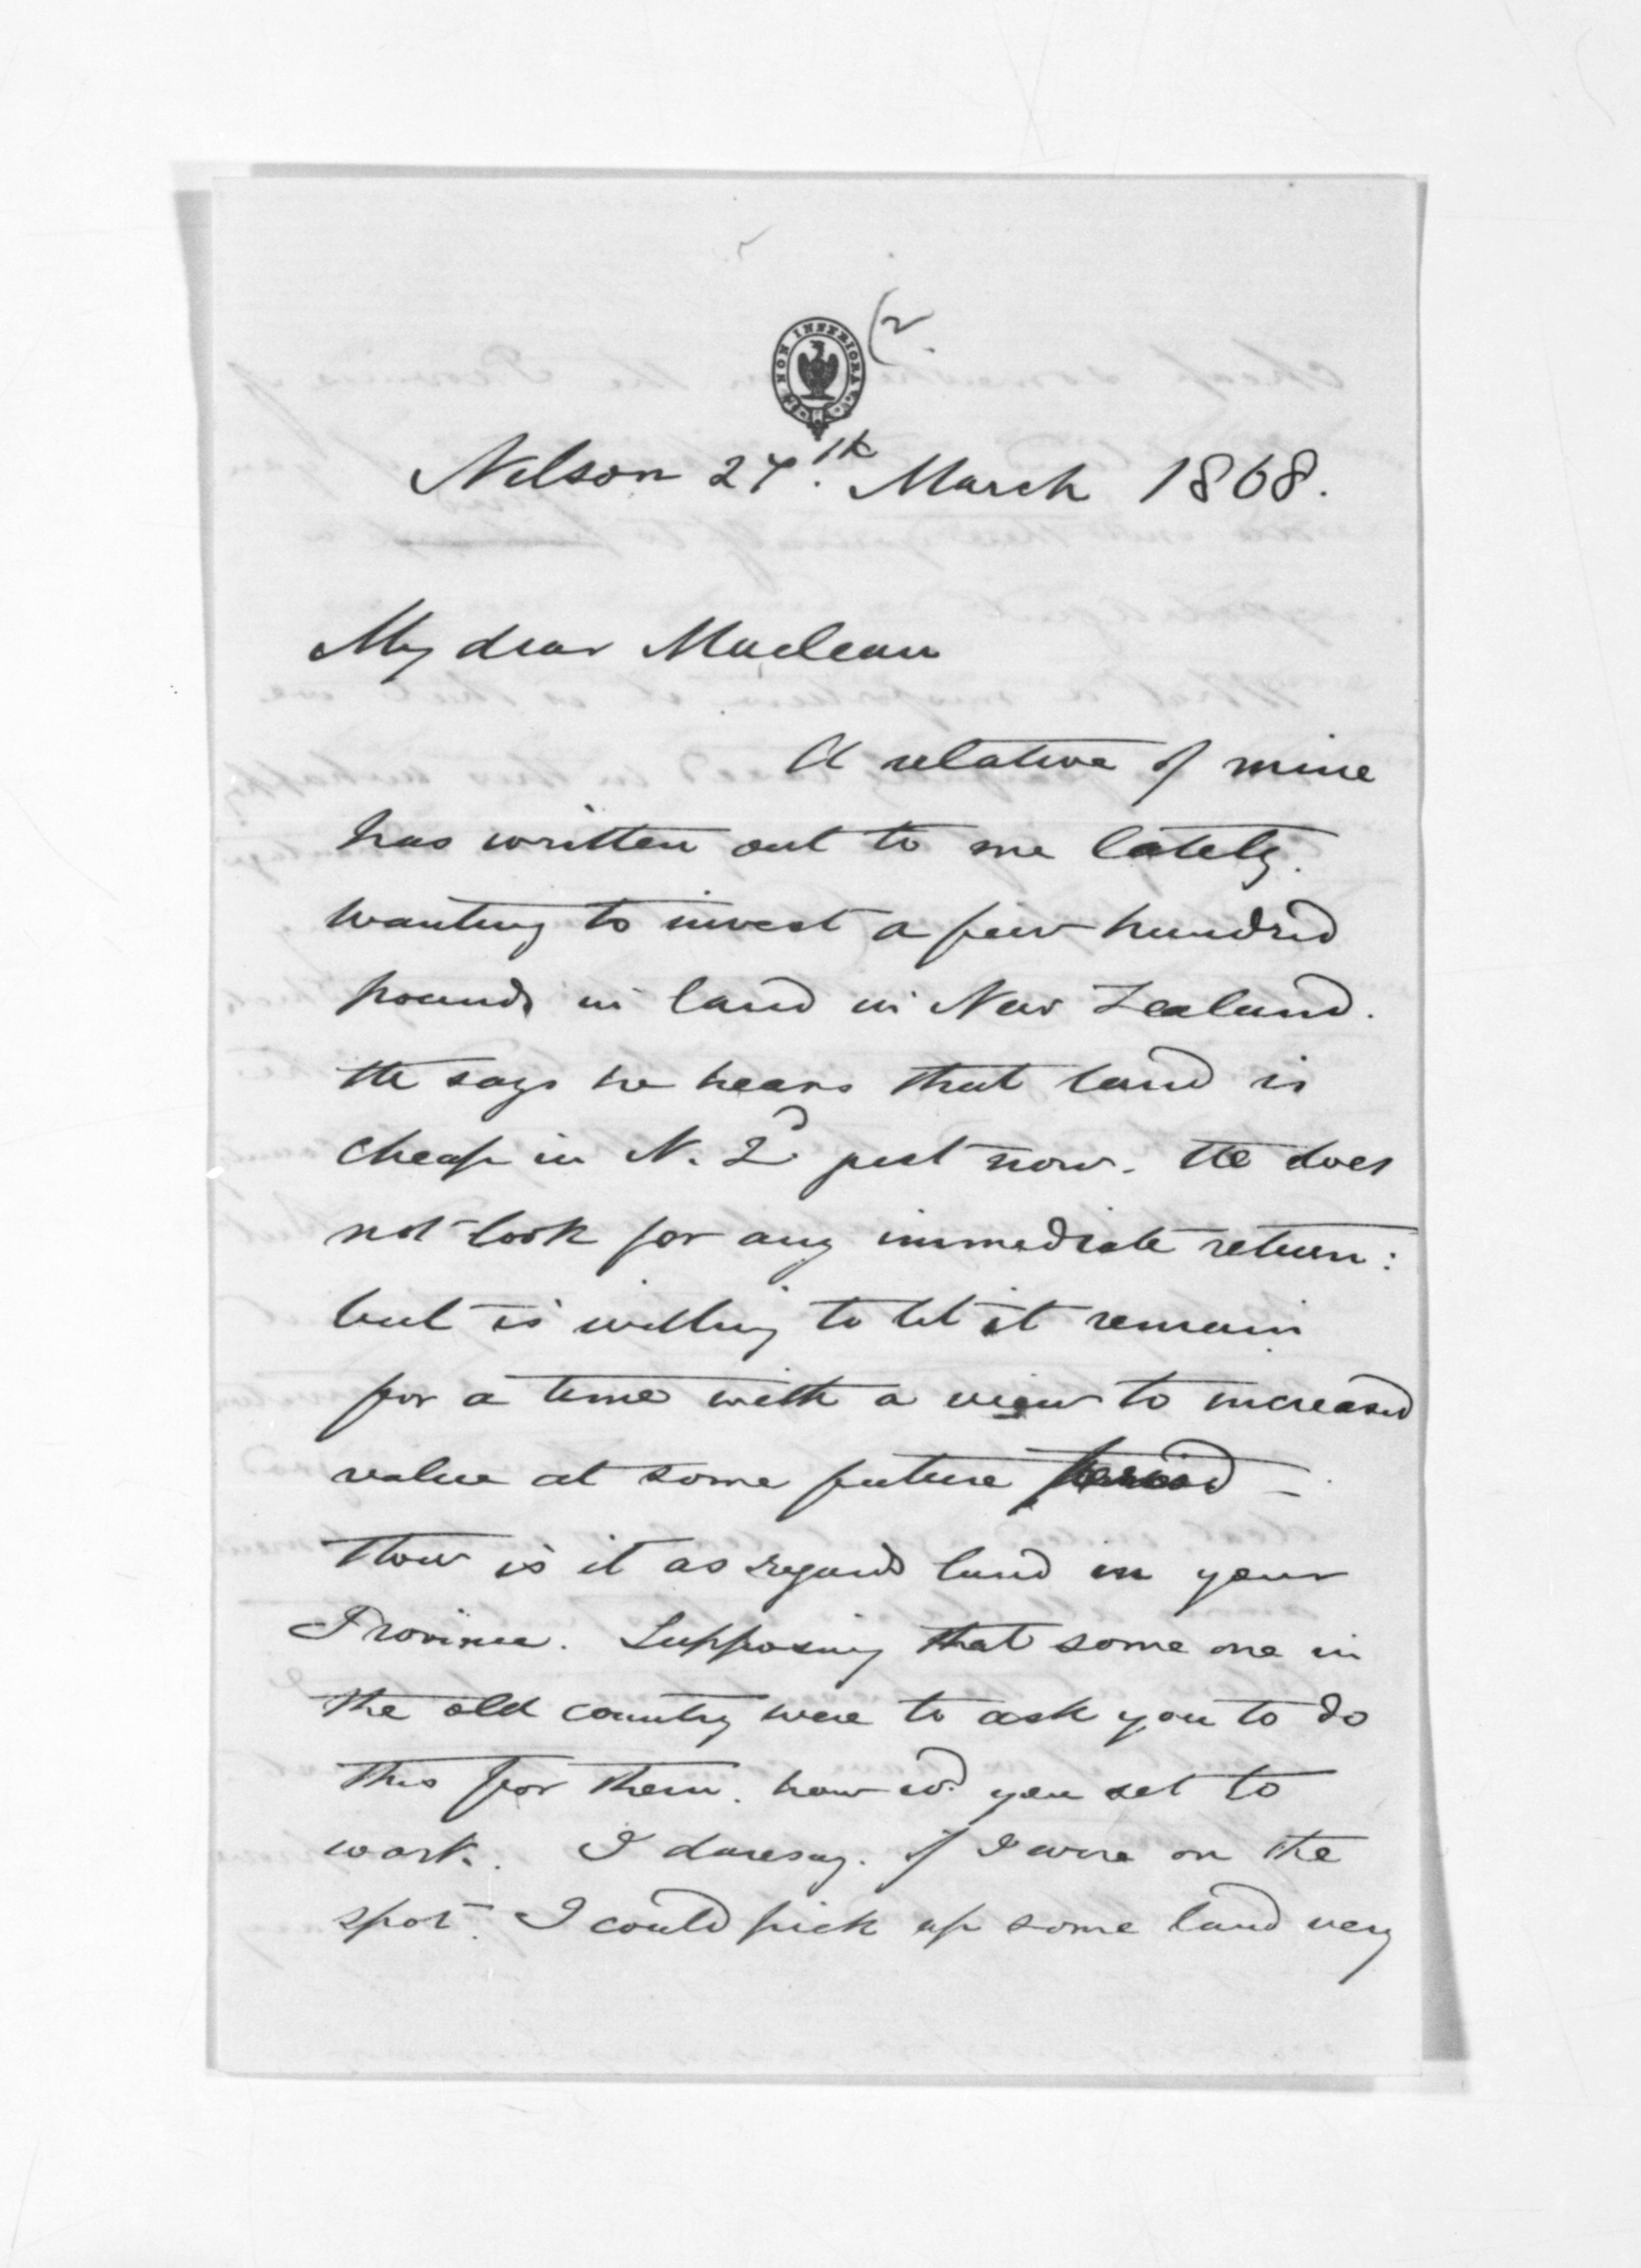 (2.
NON INFERIORA
Nelson 27th. March 1868.
My dear Maclean
A relative of mine
has written out to me lately.
wanting to invest a few hundred
pounds in land in New Zealand.
He says he hears that land is
cheap in N. Zd just now. He does
not look for any immediate return:
but is willing to let it remain
for a time with a view to increased
value at some future period –
How is it as regards land in your
Province. Supposing that some one in
the old country were to ask you to do
this for them. how wd. you set to
work. I daresay. if I were on the
spot. I could pick up some land very